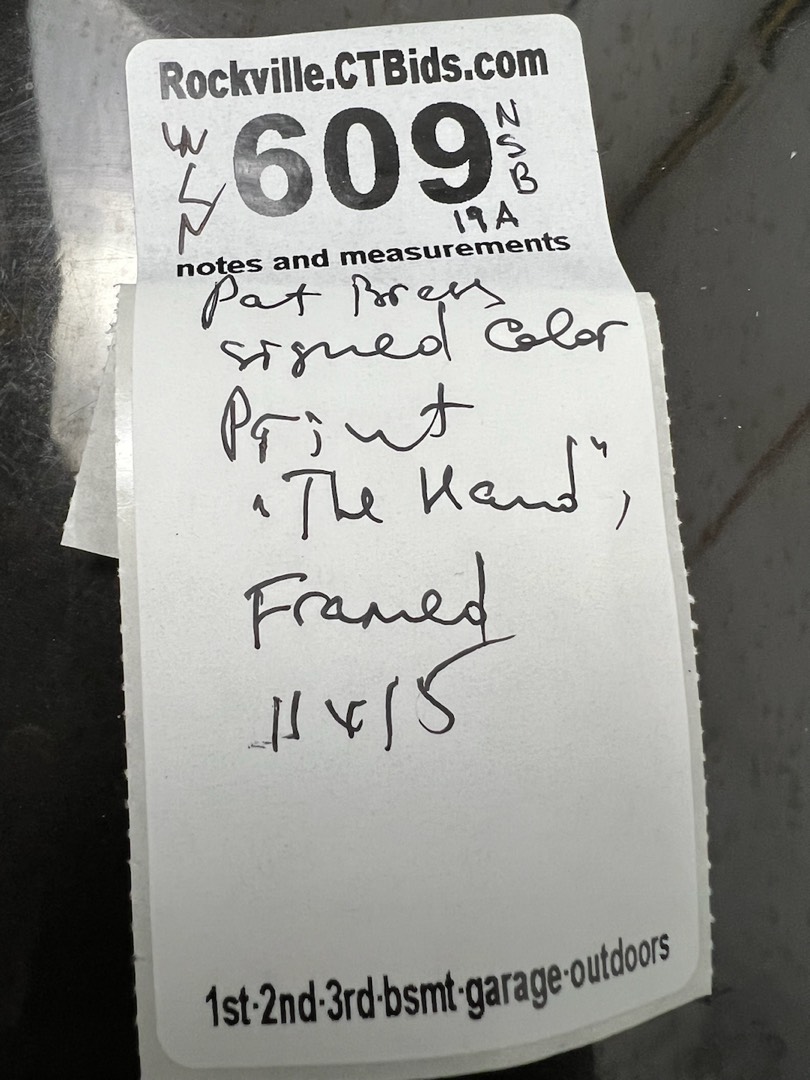 Rockville.CTBids.com
609
N
S
B
19A
notes and measurements
Pat
signed Color
Print
"The Hand",
Framed
11x15
1st·2nd·3rd·bsmt·garage·outdoors